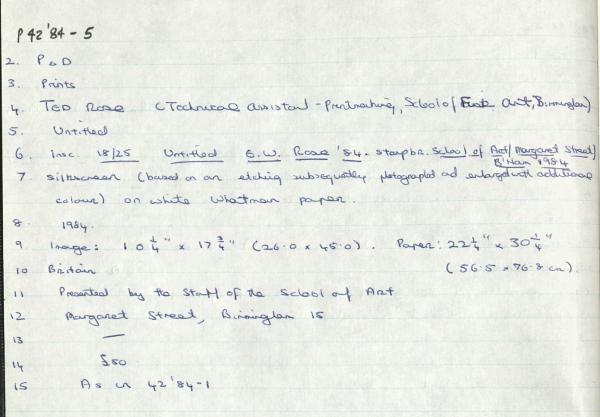 P 42'84 - 5
2. P & D
3. Prints
4. TED Rose (Technical assistant - Printmaking, School of Art, Birmingham)
5. Untitled
6. insc. 18/25 Untitled E.W. Rose '84. stamp br. School of Art/Margaret Street/
B'Ham 1984
7 silkscreen (based on an etching subsequently photographed and enlarged with additional
colour) on white Whatman paper.
8 1984.
9 Image: 10 1/4" x 17 3/4" (26.0 x 45.0). Paper: 22 1/4" x 30 1/4"
10 Britain (56.5 x 76.8 cm).
11 Presented by the Staff of the School of Art
12 Margaret Street, Birmingham 15
13 —
14 £50
15 As in 42'84-1